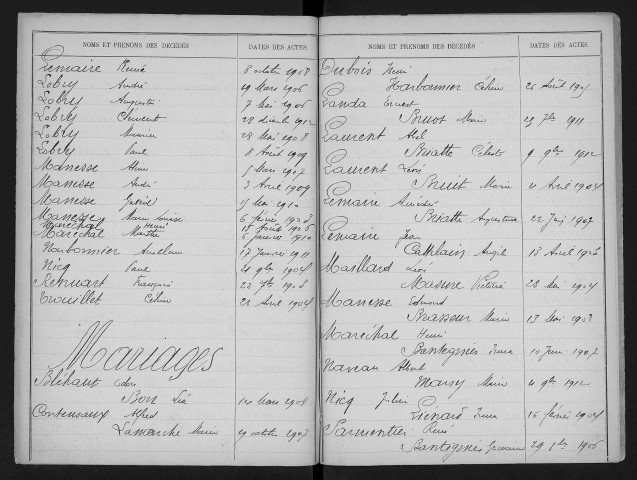 NOMS ET PRÉNOMS DES DÉCÉDÉS DATES DES ACTES.
Lemaire Renée 8 octobre 1908
Lobry André 19 Mars 1906
Lobry Augustin 7 Mai 1906
Lobry Clément 28 1912
Lobry Maurice 28 Mai 1908
Lobry Paul 8 Août 1909
Manesse 5 Mars 1907
Manesse André 3 Avril 1909
Manesse Gabriel 1910
Manesse Marie Louise 6 février
Maréchal Henri 18 Août
Maréchal Marthe 6 Janvier 1910
Narbonnier Anselme 17 Janvier 1911
Nicq Paul 9bre 1904
Renuart François 7bre
Trouillet Céline 22 Avril 1904
Mariages
Bléhaut
Bon Léa 14 Mars
Contensaux Alfred
Lamarche Marie 19 octobre 1907
NOMS ET PRÉNOMS DES DÉCÉDÉS DATES DES ACTES.
Dubois Henri
Harbonnier Céline 26 Août
Landa Ernest
Bruot Marie 7bre 1911
Laurent Abel
Briatte Céleste 9 9bre 1912
Laurent Léon
Bruit Marie 11 Avril 1904
Lemaire
Briatte Augustine 22 Juin 1907
Lemain Jean
Cathlain 18 Avril
Maillard Léon
Masure Victoria 28 Mai 1904
Manesse Edmond
Brasseur Marie 13 Mai 1908
Maréchal Henri
Bantegnies Irma 10 Juin 1907
Naveau Albert
Marsy Marie 4 9bre 1912
Nicq Julien
Liénard Irma 16 février 1904
Parmentier René
Bantegnies Germaine 29 1906